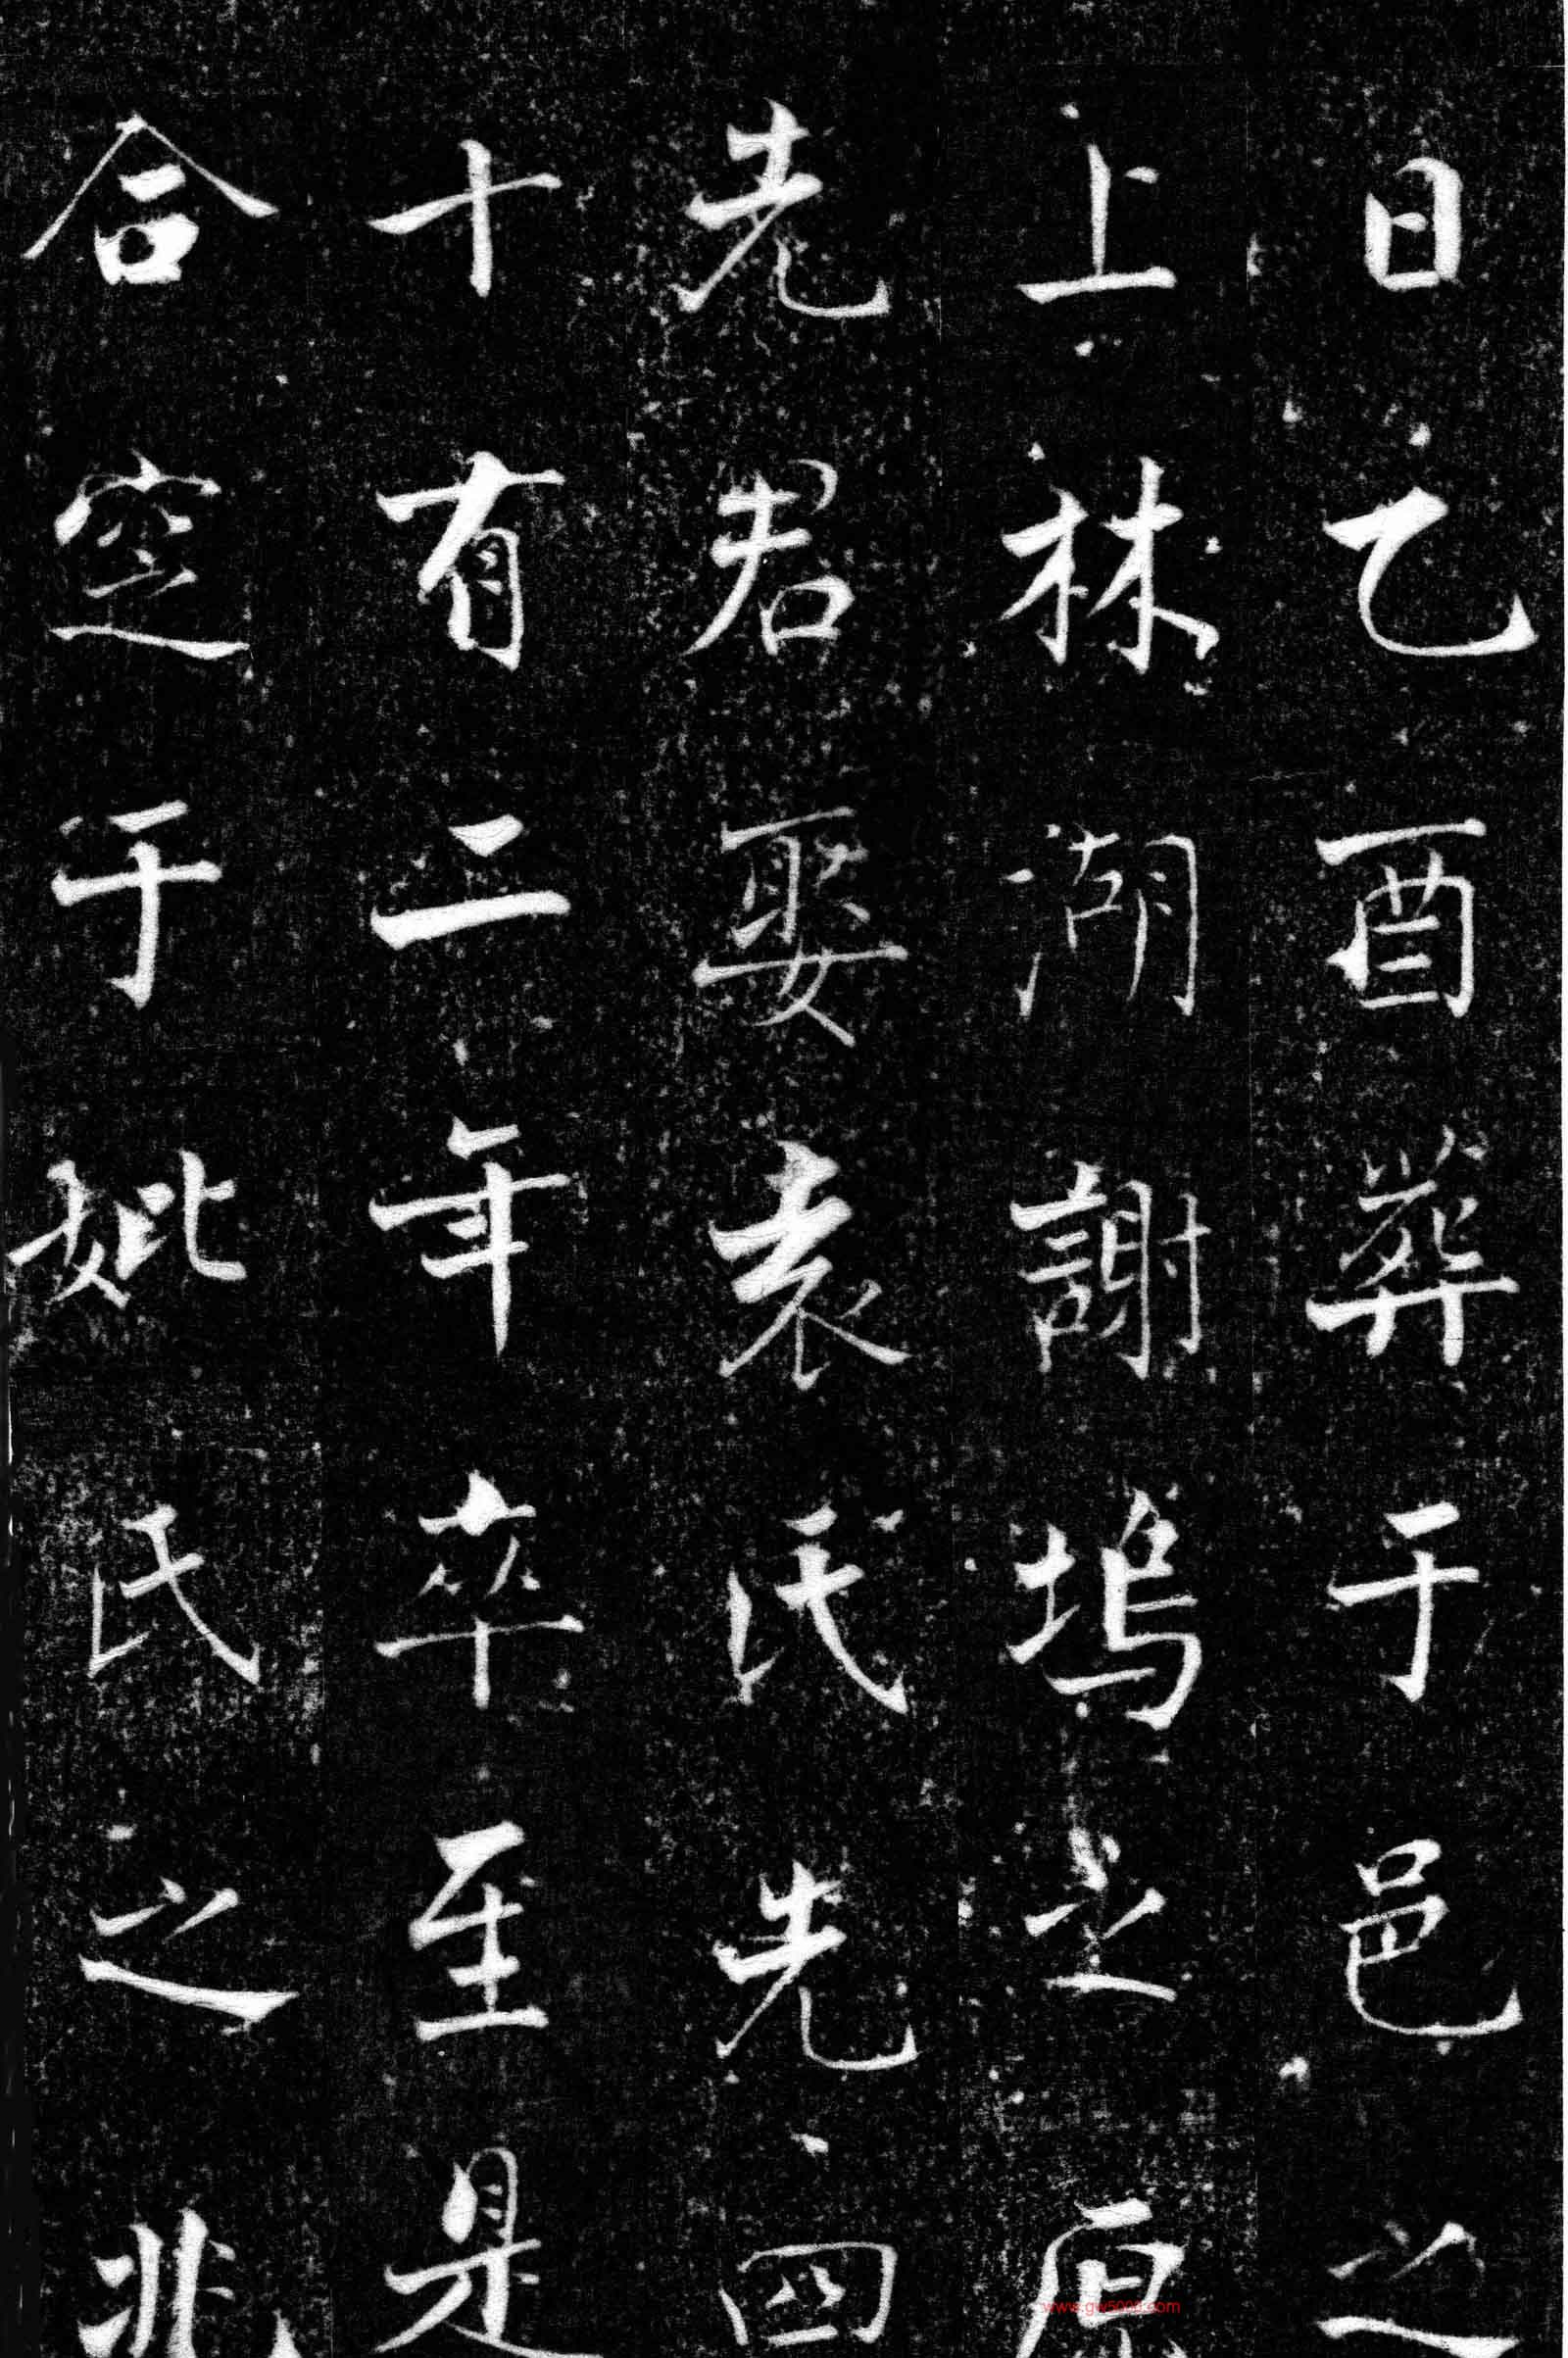 日乙酉葬于邑之
上林湖謝塢之原
先君娶袁氏先四
十有二年卒至是
合窆于妣氏之兆
www.gw5000.com